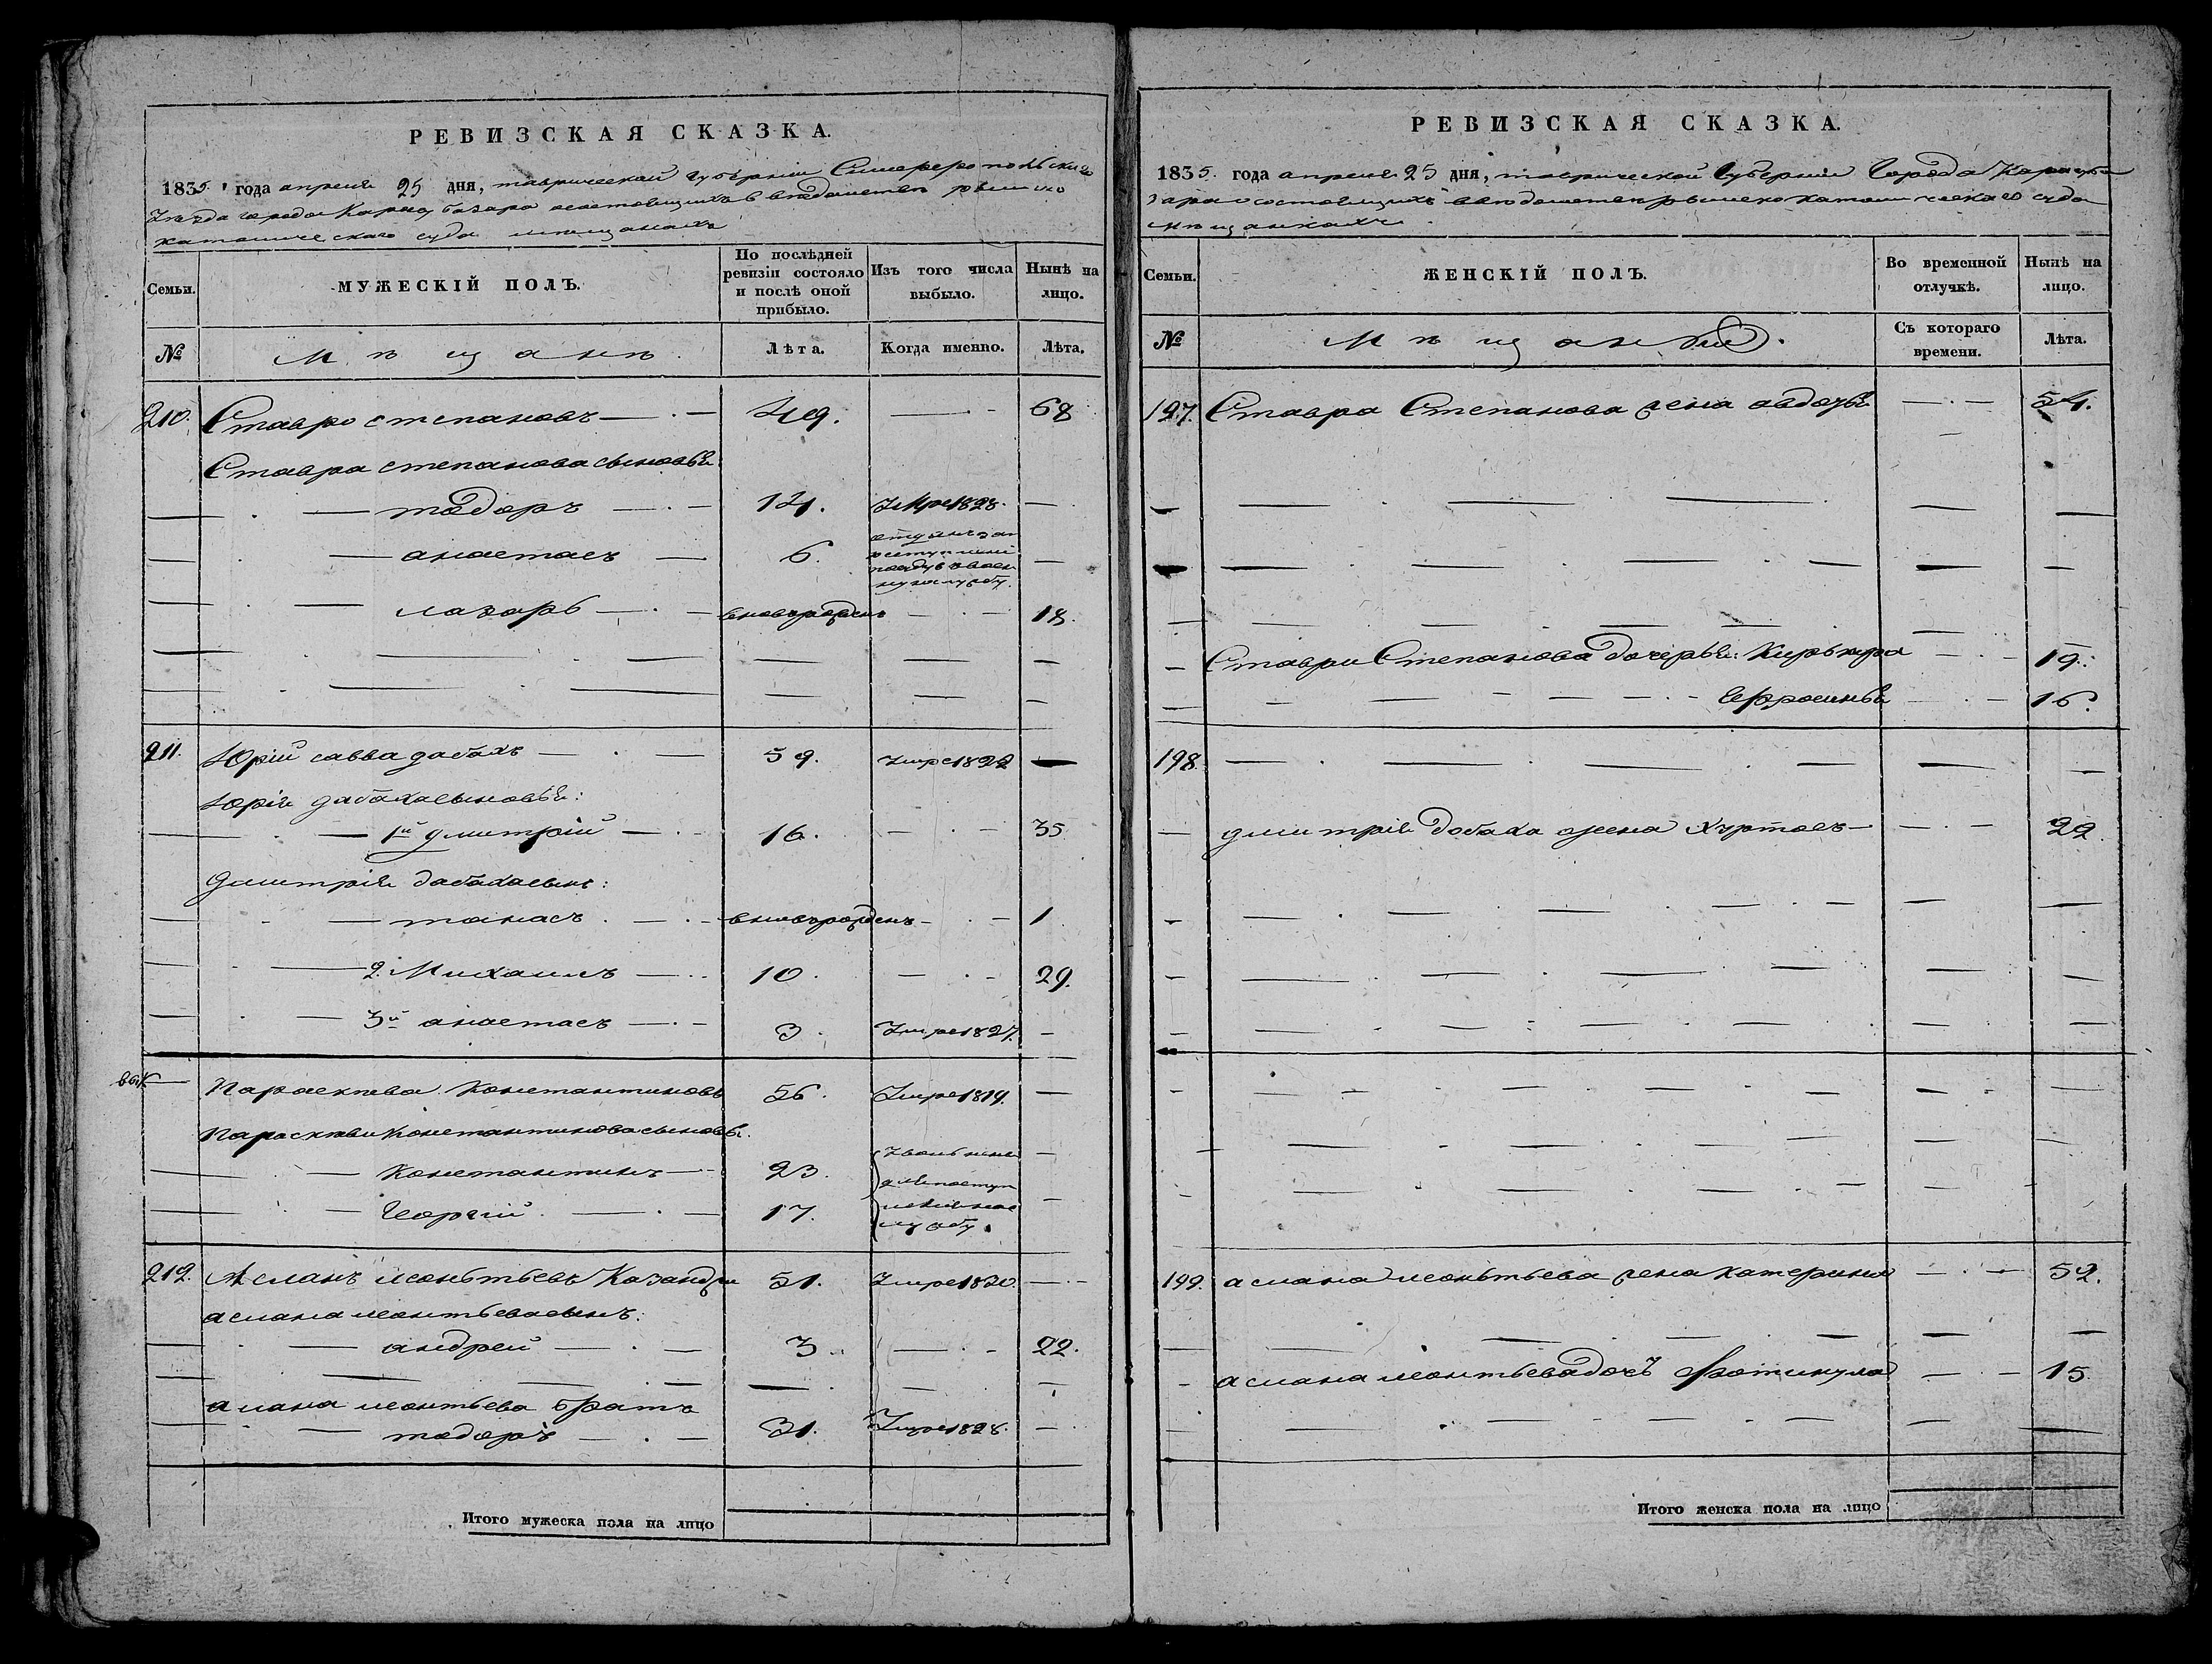 РЕВИЗСКАЯ СКАЗКА.
1835 года апреля 25 дня, таврической губернии Симферопольскаго
Уезда города Карасубазара состоящихъ в ведомстве римско
католическаго суда мещанахъ
Семьи.
МУЖЕСКІЙ ПОЛЪ.
По послѣдней ревизіи состояло и послѣ оной прибыло.
Изъ того числа выбыло.
Нынѣ на лицо.
№
Мѣщанъ
Лѣта.
Когда именно.
Лѣта.
210. Ставро степановъ 49. 68
Ставра степанова сыновья
тодоръ 14. Умре 1828.
анастасъ 6.
лазарь вновърожденъ 18.
211. Юрій савва дабахъ 59. Умре 1822
Юрія дабаха сыновья:
1й дмитрій 16. 35
дмитрія дабаха сынъ:
танасъ вновърожденъ 1
2. Михаилъ 10. 29.
3й анастасъ 3. Умре 1827.
Параскева Константиновъ 56. Умре 1819.
Параскеви Константинова сыновья.
Константинъ 23.
Георгій 17.
212. Асланъ леонтьевъ 51. Умре 1820.
аслана леонтьева сынъ:
андрей 3. 22.
аслана леонтьева братъ
тодоръ 31. Умре 1828.
Итого мужеска пола на лицо
РЕВИЗСКАЯ СКАЗКА.
1835. года апреля 25 дня, таврической Губерніи Города Карасуба
зара о состоящихъ в ведомстве римско католическаго суда
мещанкахъ.
Семьи.
ЖЕНСКІЙ ПОЛЪ.
Во временной отлучкѣ.
Нынѣ на лицо.
№
Съ котораго времени.
Лѣта.
197. Ставра Степанова жена авдотья 54.
Ставри Степанова дочерья: 19.
Ефросинья 16.
198.
дмитрія дабаха жена 22.
199. аслана леонтьева жена катерина 52.
аслана леонтьева дочь 15.
Итого женска пола на лицо